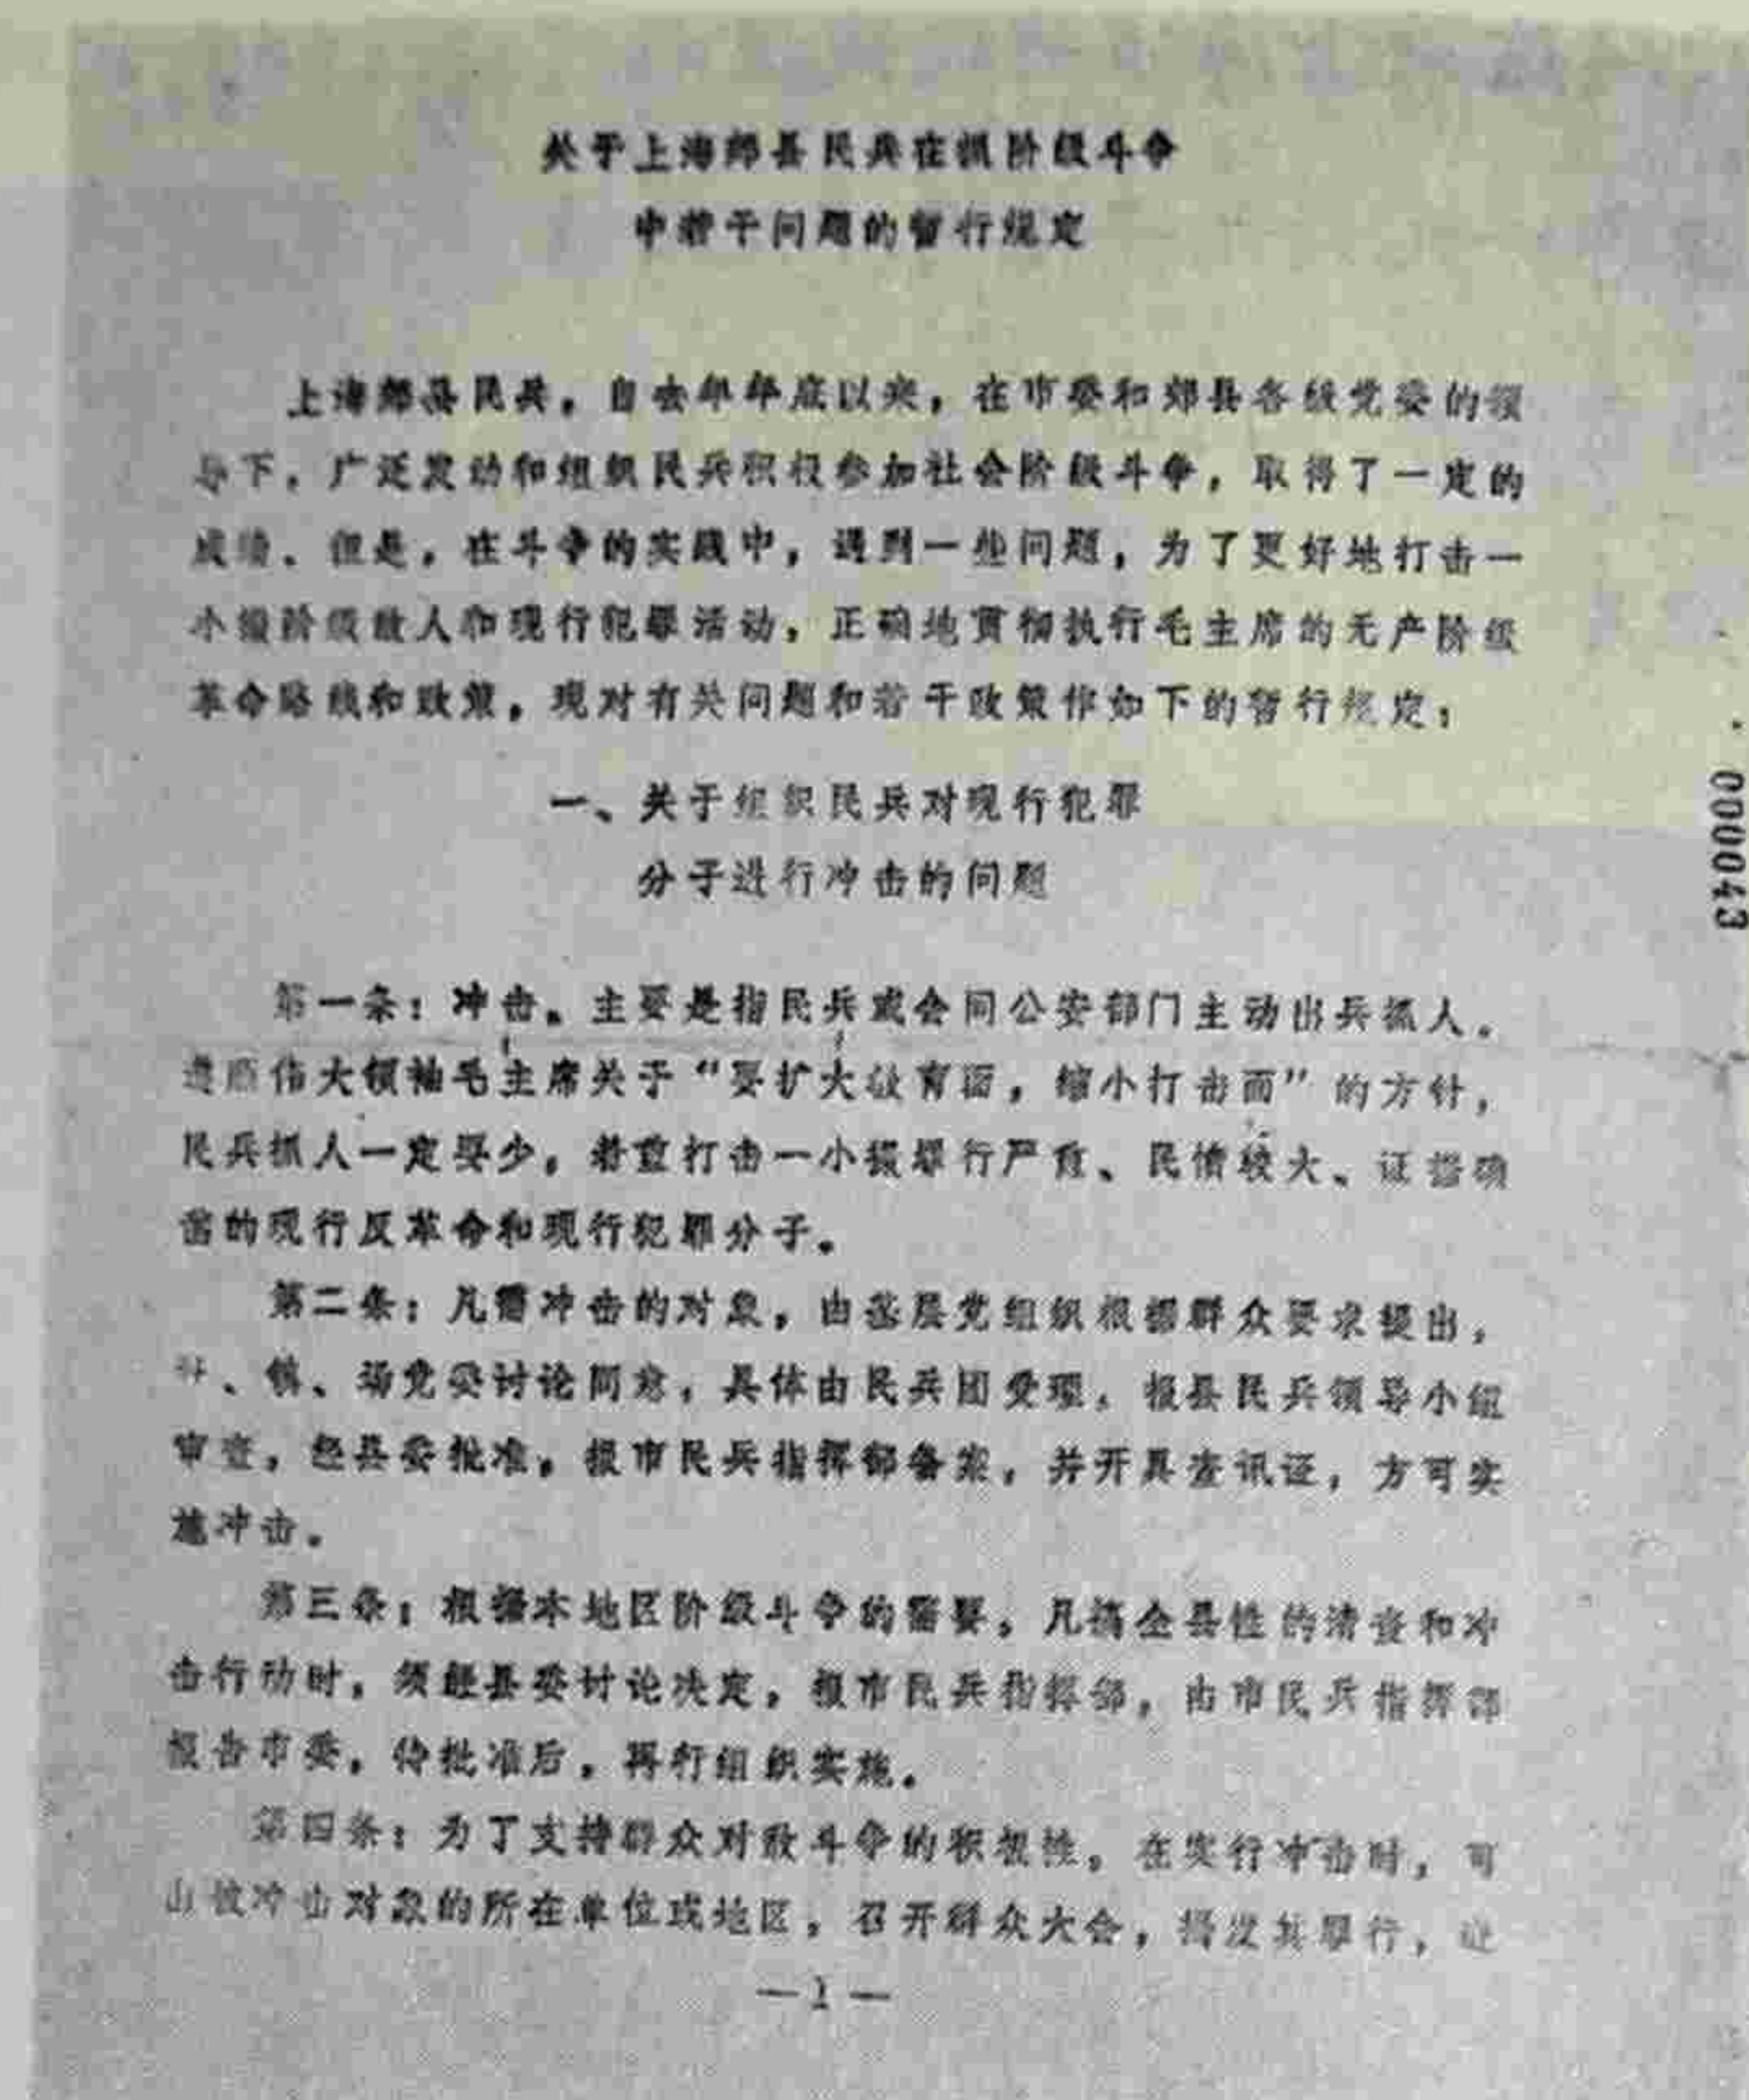 关于上海郊县民兵在抓阶级斗争
中若干问题的暂行规定
上海郊县民兵，自去年年底以来，在市委和郊县各级党委的领
导下，广泛发动和组织民兵积极参加社会阶级斗争，取得了一定的
成绩。但是，在斗争的实践中，遇到一些问题，为了更好地打击一
小撮阶级敌人和现行犯罪活动，正确地贯彻执行毛主席的无产阶级
革命路线和政策，现对有关问题和若干政策作如下的暂行规定：
一、关于组织民兵对现行犯罪
分子进行冲击的问题
第一条：冲击。主要是指民兵或会同公安部门主动出兵抓人。
遵照伟大领袖毛主席关于“要扩大教育面，缩小打击面”的方针，
民兵抓人一定要少。着重打击一小撮罪行严重、民愤较大、证据确
凿的现行反革命和现行犯罪分子。
第二条：凡需冲击的对象，由基层党组织根据群众要求提出，
社、镇、场党委讨论同意，具体由民兵团受理，报县民兵领导小组
审查，经县委批准，报市民兵指挥部备案，并开具查讯证，方可实
施冲击。
第三条：根据本地区阶级斗争的需要，凡搞全县性的清查和冲
击行动时，须经县委讨论决定，报市民兵指挥部，由市民兵指挥部
报告市委，待批准后，再行组织实施。
第四条：为了支持群众对敌斗争的积极性，在实行冲击时，可
由被冲击对象的所在单位或地区，召开群众大会，揭发其罪行，进
—1—
0000043